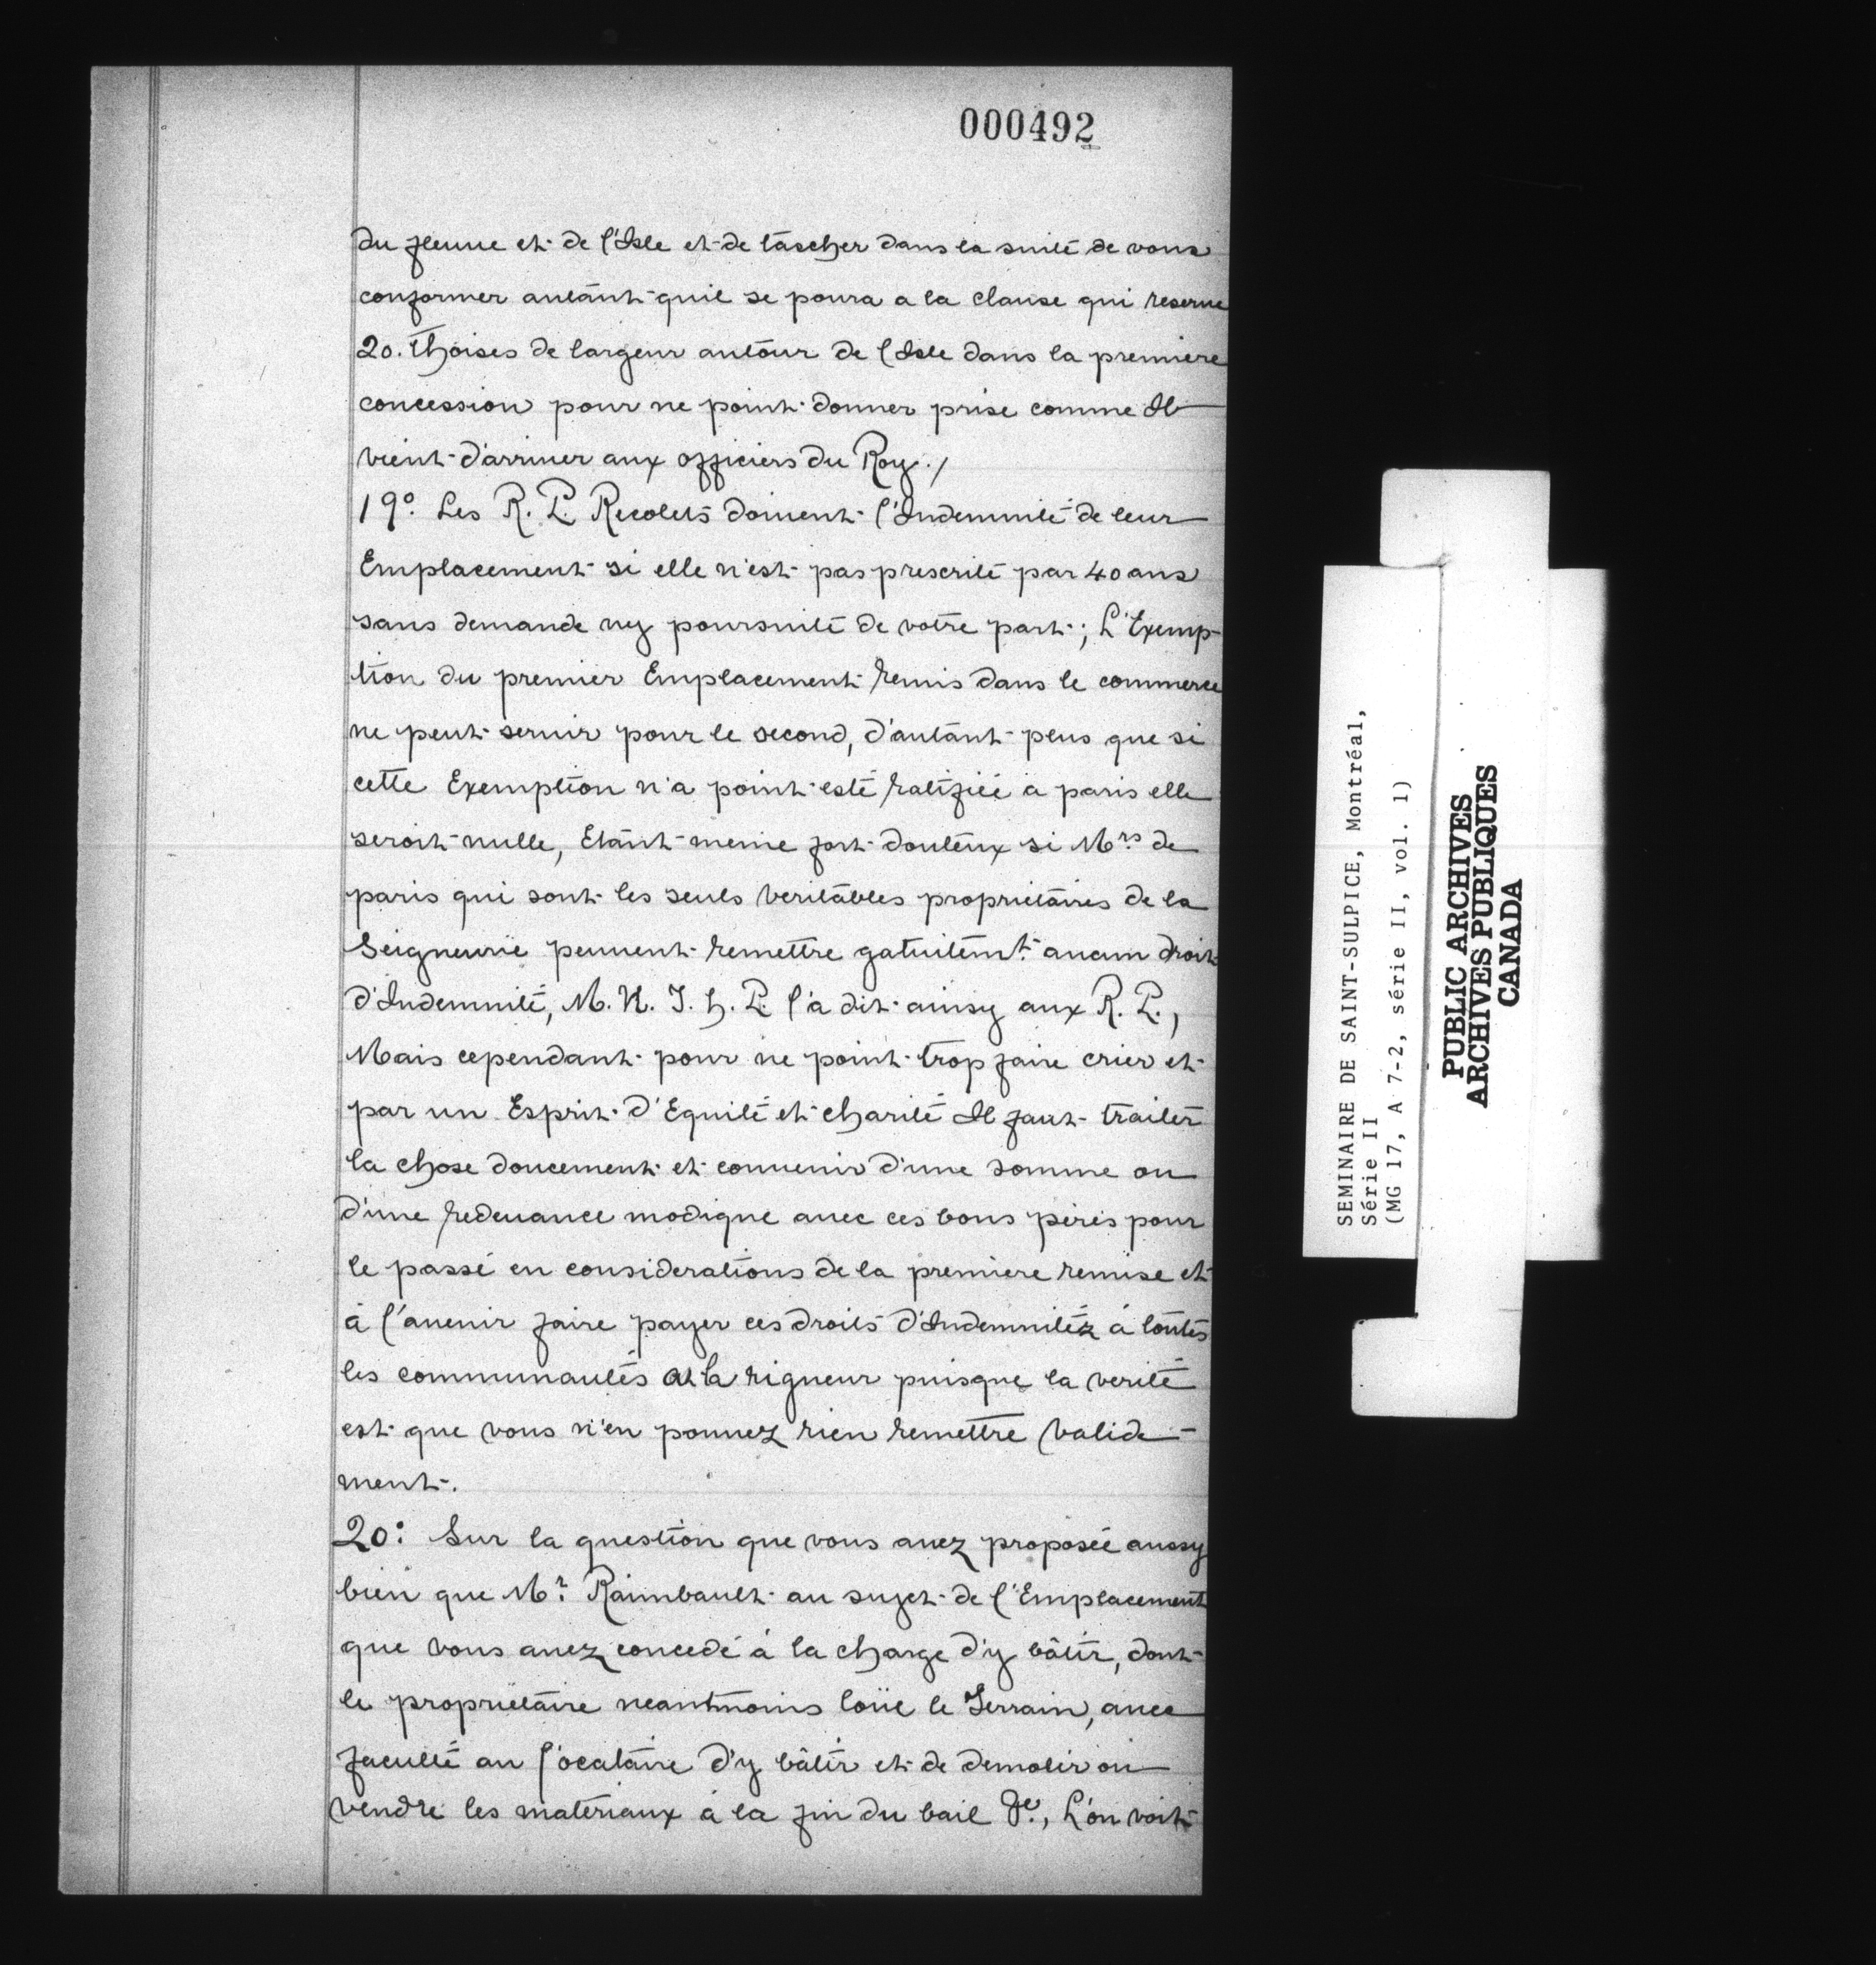 000492
du fleuue et de l'Isle et de tascher dans la suite de vous
conformer autant quil se poura a la clause qui reserue
20. thoises de largeur autour de l'Isle dans la premiere
concession pour ne point donner prise comme Il
vient d'arriuer aux officiers du Roy./
19º. Les R. P. Recolets doiuent l'Indemnité de leur
Emplacement si elle n'est pas prescrite par 40 ans
sans demande ny poursuite de votre part; L'Exemp-
tion du premier Emplacement remis dans le commerce
ne peut seruir pour le second, d'autant plus que si
cette Exemption n'a point esté ratifiée a paris elle
seroit nulle, Etant meme fort douteux si Mrs. de
paris qui sont les seuls veritables proprietaires de la
Seigneurie peuuent remettre gatuitemt. aucun droit
d'Indemnité, M. N. T. h. P. l'a dit ainsy aux R. P.,
Mais cependant pour ne point trop faire crier et
par un Esprit d'Equité et charité Il faut traiter
la chose doucement et conuenir d'une somme ou
d'une redeuance modique auec ces bons péres pour
le passé en considerations de la premiere remise et
à l'auenir faire payer ces droits d'Indemnitéz à toutes
les communautés a la rigueur puisque la verité
est que vous n'en pouuez rien remettre valide-
ment.
20º: Sur la question que vous auez proposée aussy
bien que Mr. Raimbault au sujet de l'Emplacement
que vous auez concedé à la charge d'y bâtir, dont
le proprietaire neantmoins loüe le Terrain, auec
faculté au locataire d'y bâtir et de demolir ou
vendre les materiaux à la fin du bail &c., L'on voit
SEMINAIRE DE SAINT-SULPICE, Montréal,
Série II
(MG 17, A 7-2, série II, vol. 1)
PUBLIC ARCHIVES
ARCHIVES PUBLIQUES
CANADA